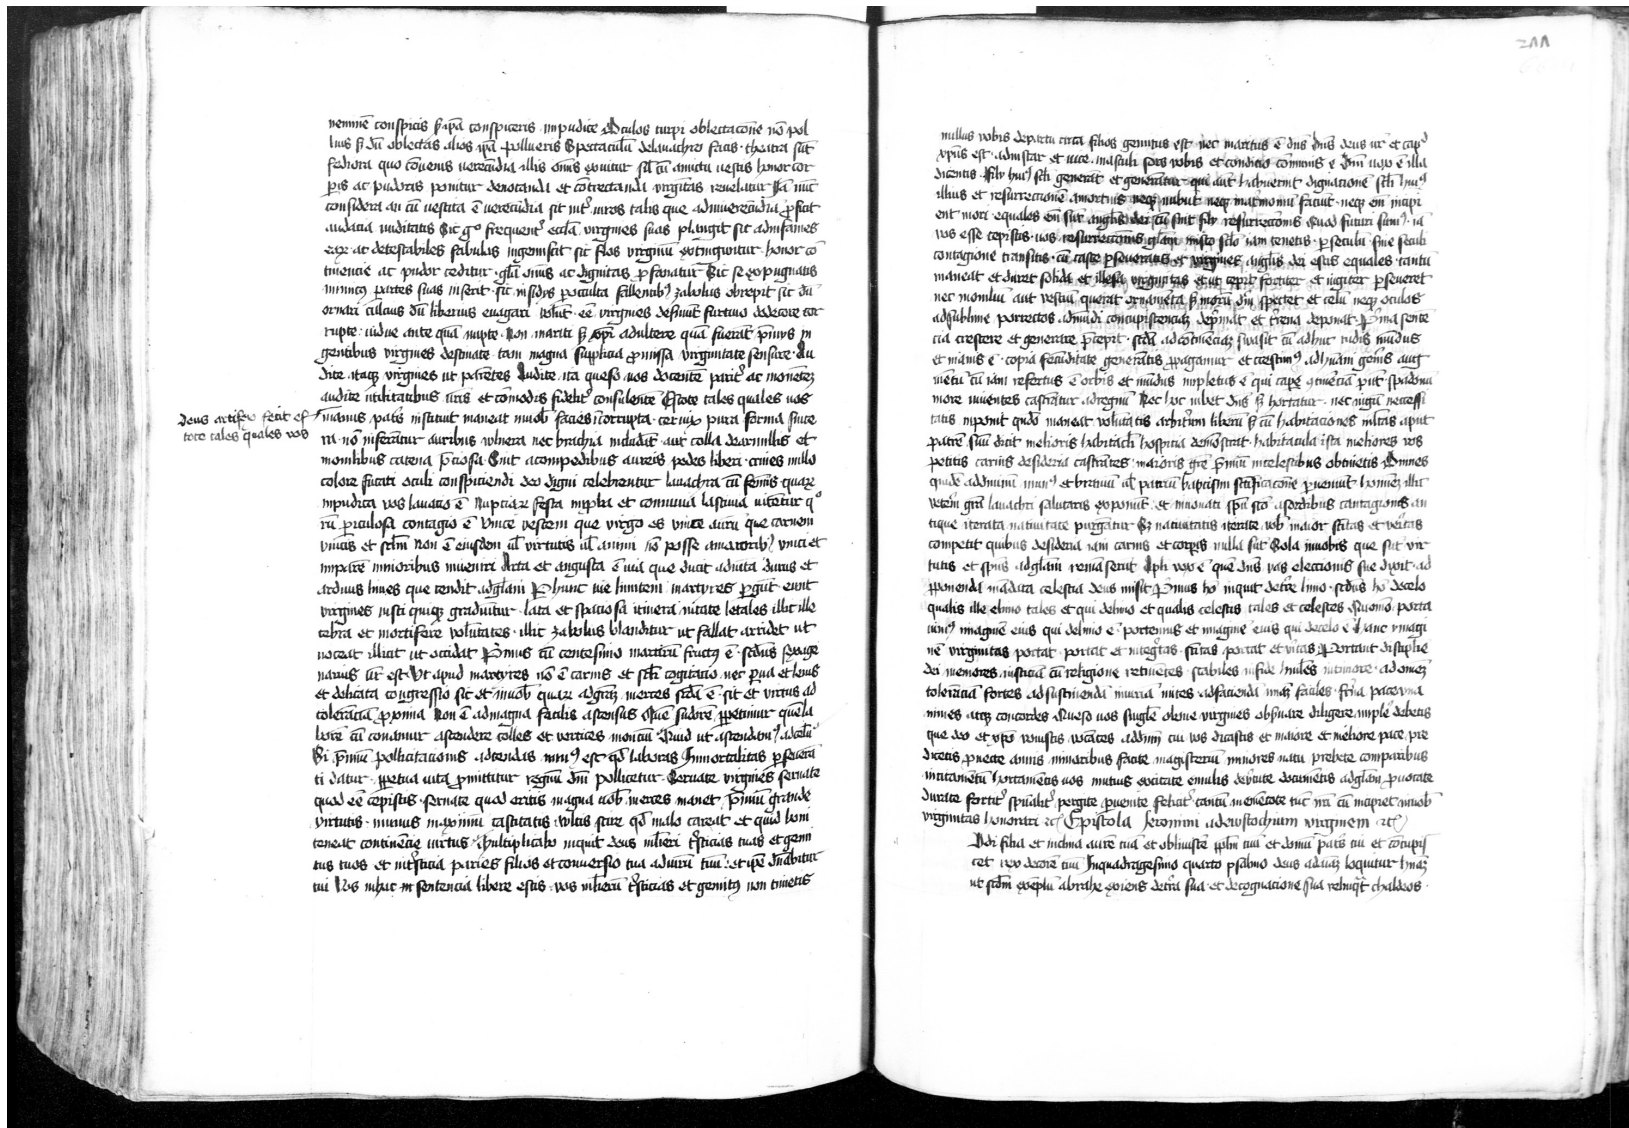 neminē conspicis s; ip̄a conspiceris impudice Oculos turpi oblectacōne nō pol
luis s; dū oblectas alios ip̄a pollueris Spectaculū delauachro facis · theatra sūt
fediora quo cōuenis verecūdia illis om̄is exuitur sīl cū amictu vestis honor cor
p̄is ac pudoras ponitur denotanda et cōtrectanda virgītas reuelatur Iā nūc
considera an cū vestita ē verecūdia sit int̄ viros talis que adinuerecūdiā p̄ficit
audacia nuditatis Sic g° frequent̄ ecclā virgines suas plangit sic adinfames
earū ac detestabiles fabulas ingemiscit sic flos virginū extinguitur · honor cō
tinencie ac pudor ceditur · gl̄a omīs ac dignitas p̄fanatur Sic se expugnatis
inimicus partes suas inserit · sic insidijs p̄occulta fallentib; zabolus obrepit sic dū
ornari cultius dū liberius euagari volūt · eē virgines desinūt furtiuo dedecore cor
rupte · uidue ante quā nupte · Non mariti s; xpī adultere quā fuerāt p̄mijs in
gentibus virgines destinate tam magna supplicia p̄missa virginitate sensure · Au
dite itaq; virgines ut parētes Audite ita queso vos docentē parit̄ ac monētē
audite utilitatibus vr̄is et cōmodis fidelit̄ consulentē Estote tales quales uos
Deus artifex fecit es
tote tales quales vos
manus patr̄s instituit maneat in uob̄ facies īcorrupta · ceruix pura forma since
ra · nō inferātur auribus vulnera nec brachia includāt aut colla dearmillis et
monilibus catena p̄ciosa · Sint acompedibus aureis pedes liberi · crines nullo
colore fucati oculi conspiciendi deo digni celebrentur lauachra cū femīs quarū
inpudica vos lauatio ē Nuptiarū festa inproba et conuiuia lasciua vitētur q°
rū p̄iculosa contagio ē Vince vestem que virgo es vince aurū que carnem
vincis et sclm̄ Non ē eiusdem ul̄ virtutis ul̄ animi nō posse amaiorib; vinci et
imparē minoribus inueniri Arta et angusta ē uia que ducit aduitā durus et
arduus limes que tendit adgl̄am P hunc vie limitem martyres p̄gūt eunt
virgines iusti quiq; gradiūtur · lata et spaciosa itinera uitate letales illic ille
cebra et mortifere volūtates · illic zabolus blanditur ut fallat arridet ut
noceat illicit ut occidat Primus cū centesimo martirū fructus ē · scd̄us sexage
narius vr̄ est · Vt apud martyres nō ē carnis et scl̄i cogitatio nec parua et leuis
et delicata congressio sic et in uob̄ quarū adgr̄aȝ merces scd̄a ē · sit et virtus ad
tolerāciā proxima Non ē admagna facilis ascensus Quē sudorē p̄petimur quē la
borē cū conamur ascendere colles et vertices montiū Quid ut ascendam; adcelū
Si p̄miū pollicitacionis adtendas min; est qd̄ laboras Inmortalitas p̄seuerā
ti datur · p̄petua uita p̄mittitur regnū dn̄i pollicetur · Seruate virgines seruate
quod eē cepistis · seruate quod eritis magna uob̄ merces manet p̄miū grande
virtutis · munus maximū castitatis Vultis scire qd̄ malo careat et quid boni
teneat continēcie virtus Multiplicabo inquit deus mulieri tristicias tuas et gemi
tus tuos et in tristicia paries filios et conuersio tua aduirū tuū · et ip̄e dn̄abitur
tui Vos abhac in sentencia libere estis · vos mulierū tristicias et gemitus non timetis
211
nullus vobis departu circa filios gemitus est · nec maritus ē dn̄s dn̄us deus vr̄ et cap̄d
xp̄us est · adinstar et uice masculi sors vobis et conditio cōmunis ē Dn̄i vox ē illa
dicentis · Filij hui; scl̄i generāt et generātur qui aūt habuerint dignacionē scl̄i hui;
illius et resurrectionē amortuis neq; nubūt neq; matrimoniū faciūt · neq; em̄ incipi
ent mori equales em̄ sūt angl̄is dei cū sint filij resurrectionis Quod futuri sumus iā
vos esse cepistis · uos resurrectionis gl̄am insto sclo iam tenetis · per seculū sine seculi
contagione transitis · cū caste p̄seueratis et virgines angl̄is dei estis equales · tantū
maneat et duret solida et illesa virginitas et ut cepit fortiter et iugiter p̄seueret
nec moniliū aut vestiū querat ornamēta s; morū dn̄m spectet et celū neq; oculos
adsublime porrectos admūdi concupistenciaȝ dep̄mat et t̄rena deponat · Prima sentē
cia crescere et generare p̄cepit · scd̄a adcōtinenciaȝ suasit cū adhuc rudis mūdus
et inanis ē copia fecūditate generātis p̄pagamur et crescim; adhūani gen̄is aug
mētū cū iam refertus ē orbis et mūdus impletus ē qui cape ɔtinēcia pn̄t spadonū
more viuentes castrātur adregnū Nec hoc iubet dn̄s s; hortatur · nec iugū necessi
tatis inponit quādo maneat volūtatis arbitriū liberū s; cū habitaciones mltas aput
patrē suū dicit melioris habitacli hospitia demōstrat · habitacula ista meliores vos
petitis carnis desideria castrātes maioris gr̄e p̄miū incelestibus obtinetis Omnes
quidē addiuinū mun; et bratriū ul̄ patriū baptismi sctificacōne p̄ueniūt hominē illic
veterē grā lauachri salutaris exponūt et innouati spū sco asordibus cantagionis an
tique iterata natiuitate purgātur Sȝ natiuitatis iterate vob̄ maior sc̄itas et veritas
competit quibus desideria iam carnis et corporis nulla sūt Sola inuobis que sūt vir
tutis et spūs adgl̄am remāserūt Apl̄i vox ē que dn̄s vas electionis sue dixit · ad
p̄ponenda mādata celestia deus misit Primus hō inquit det̄re limo · scd̄us hō decelo
qualis ille elimo tales et qui delimo et qualis celestis tales et celestes Quomō porta
uim; imaginē eius qui delimo ē · portemus et imaginē eius qui decelo ē Hanc ymagi
nē virginitas portat · portat et inteḡtas · sc̄itas portat et vitas Portant discipline
dei memores iusticiā cū religione retinētes · stabiles infide humiles intimore · ad omēȝ
tolerāciā fortes adsustinendā iniuriā mites adfacienda mi͞aȝ faciles · frn̄a pace vna
nimes atq; concordes Queso uos singl̄e o bone virgines obs̄uare diligere imple debetis
que deo et xpō vouistis vocātes addn̄m cui vos dicastis et maiorē et meliorē parte pre
dicetis puecte annis minoribus facite magisteriū minores natu prebete comparibus
incitamētū hortamētis uos mutuis excitate emulis debitute documētis adgl̄am p̄uocate
durate fortit̄ spūalit̄ pergite p̄uenite felicit̄ tantū memētote tūc nr̄i cū incipiet in uob̄
virginitas honorari rc̄ Epistola Jeronimi adeustochium virginem rc̄
Adi filia et inclina aurē tuā et obliuiscē pplm̄ tuū et domū patr̄s tui et cōcupis
cet rex decorē tuū Inquadragesimo quarto psalmo deus adaīaȝ loquitur hūaȝ
ut scdm̄ exemplū abrahe exiens det̄ra sua et decognacione sua relinq̄t chaldeos